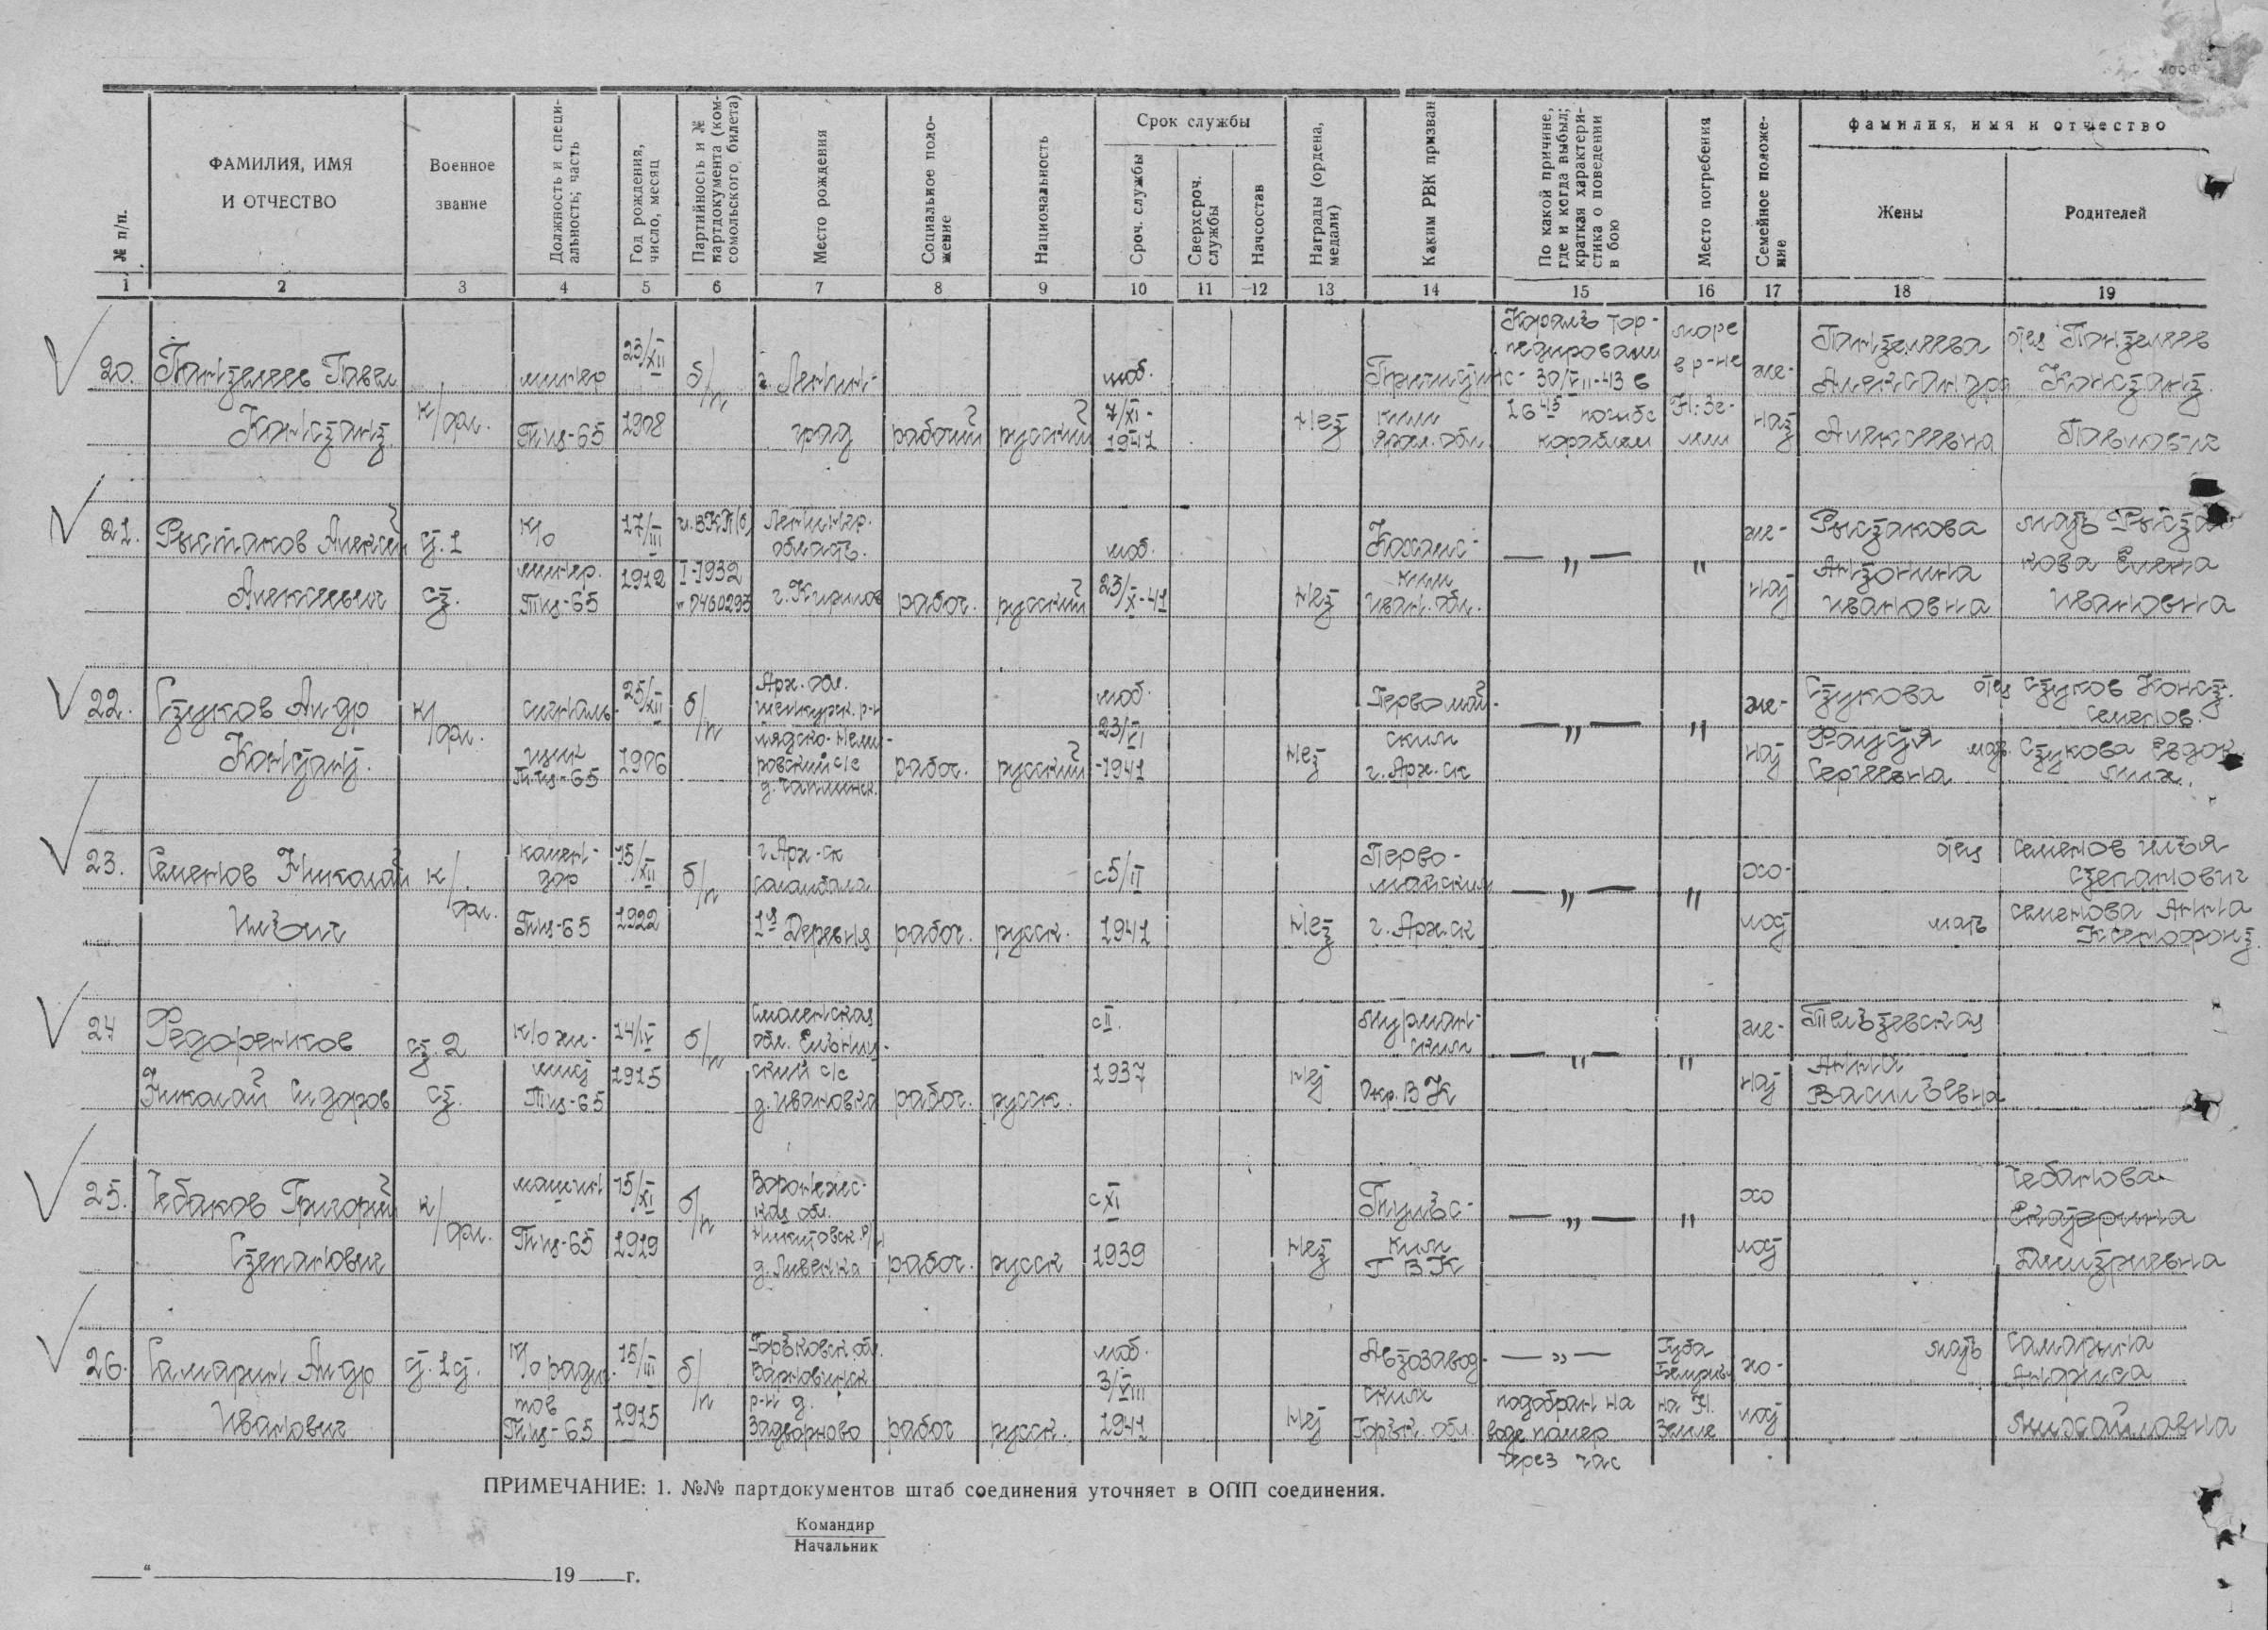 ФАМИЛИЯ, ИМЯ
И ОТЧЕСТВО
Военное
звание
Должность и специ-
альность; часть
Год рождения,
число, месяц
Партийность и №
партдокумента (ком-
сомольского билета)
Место рождения
Социальное поло-
жение
Национальность
Срок службы
Сроч. службы
Сверхсроч.
службы
Начсостав
Награды (ордена,
медали)
Каким РВК призван
По какой причине,
где и когда выбыл;
краткая характери-
стика о поведении
в бою
Место погребения
Семейное положе-
ние
фамилия, имя и отчество
Жены
Родителей
№ п/п.
1 2 3 4 5 6 7 8 9 10 11 12 13 14 15 16 17 18 19
20. Пантелеев Павел
Констант.
к/фл.
минер
Тщ-65
23/XII
1908
б/п
г. Ленин-
град
рабочий
русский
моб.
7/XI-
1941
нет
ким
Арх. обл.
Корабль тор-
педирован
30/VII-43 в
16 45 погиб с
кораблем
море
в р-не
Н. Зе-
мли
же-
нат
Пантелеева
Александра
Алексеевна
отец Пантелеев
Констант.
Павлович
21. Рыстаков Алексей
Алексеевич
ст. 1
ст.
к/о
минер.
Тщ-65
17/III
1912
ч. ВКП(б)
I-1932
Ленингр.
область.
г. Кирилов
рабоч.
русский
моб.
23/X-41
нет
ким
Иван. обл.
— „ —
„
же-
нат
Рыстакова
Антонина
Ивановна
мать Рыста-
кова Елена
Ивановна
22. Стуков Андр
Констант.
к/фл.
сигналь-
щик
Тщ-65
25/XII
1906
б/п
Арх. обл.
шенкурск. р-н
ровский с/с
рабоч.
русский
моб.
23/VI
-1941
нет
Первомай-
ским
г. Арх-ск
— „ —
„
же-
нат
Стукова
Фаустя
Сергеевна
отец Стуков Конст.
Семенов.
мать Стукова Евдок.
Мих.
23. Семенов Николай
Ильич
к/фл.
коменд-
дор
Тщ-65
15/XII
1922
б/п
г. Арх-ск
Соломбала
1я Деревня
рабоч.
русск.
с 5/II
1941
нет
Перво-
майским
г. Арх-ск
— „ —
„
хо-
лост
отец
мать
Семенов Илья
Степанович
Семенова Анна
Ксенофонт.
24 Федоренков
Николай Сидоров
ст. 2
ст.
1915
Тщ-65
б/п
Смоленская
обл. Ельнин-
ский с/с
д. Ивановка
рабоч.
русск.
с II.
1937
нет
Мурман-
ским
Окр. ВК
— „ —
„
же-
нат
Анна
Васильевна
25. Чебаков Григорий
Степанович
к/фл.
машин
Тщ-65
15/XI
1919
б/п
Воронежс-
кая обл.
Никитовск. р/н
д. Ливенка
рабоч.
русск
с XI
1939
нет
Тульс-
ким
ГВК
— „ —
„
хо
лост
Чебакова
Екатерина
Дмитриевна
26. Самарин Андр
Иванович
ст. 1 ст.
к/о радис
тов
Тщ-65
15/III
1915
б/п
Горьковск. об.
Варнавинск
р-н д.
Задворново
рабоч
русск.
моб.
3/VIII
1941
нет
Автозавод-
ским
Горьк. обл.
— „ —
подобран на
воде помер
через час
Губа
на Н.
Земле
хо-
лост
мать
Самарина
Михайловна
ПРИМЕЧАНИЕ: 1. №№ партдокументов штаб соединения уточняет в ОПП соединения.
Командир
Начальник
“ 19 г.